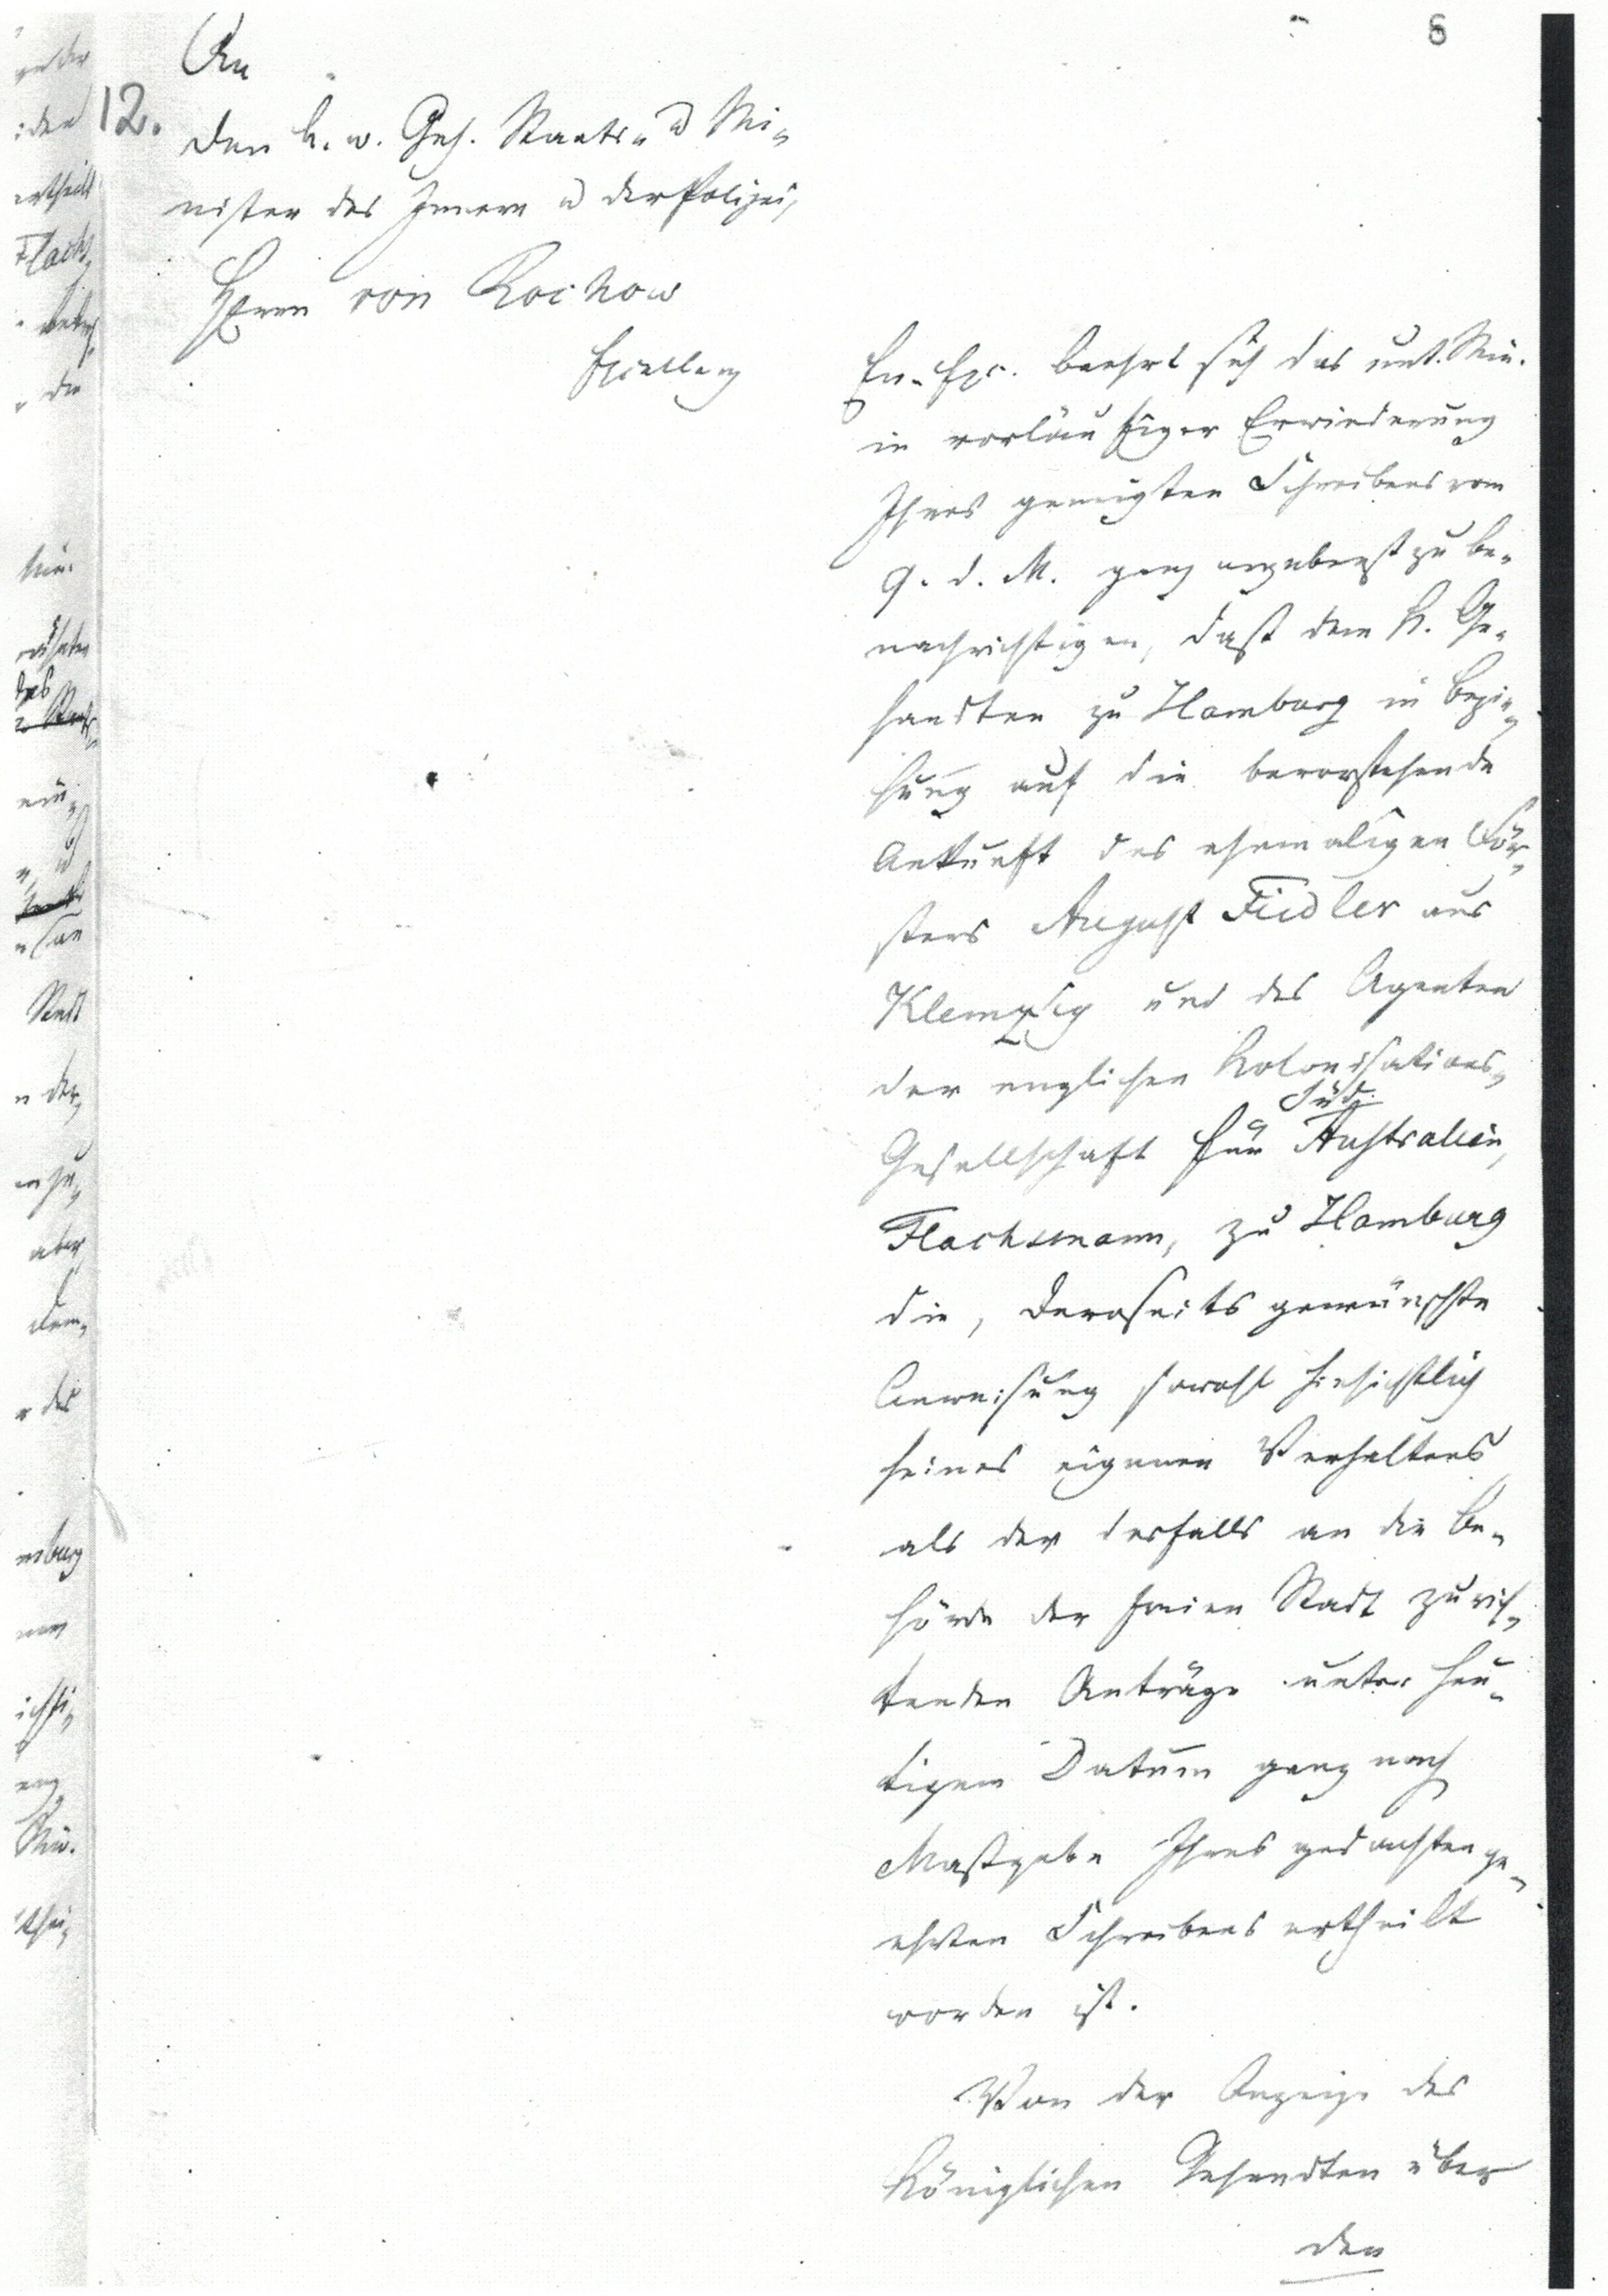 8
An
12.
den k. w. Geh. Staats- u Mi-
nister des Innern u der Polizei,
Herrn von Rochow
Excellenz
Ew. Exc. beehrt sich das unt. Min.
in vorläufiger Erwiederung
Ihres geneigten Schreibens vom
9. d. M. ganz ergebenst zu be-
nachrichtigen, daß dem K. Ge-
sandten zu Hamburg in Bezie-
hung auf die bevorstehende
Ankunft des ehemaligen För-
sters August Fiedler aus
Klemzig und des Agenten
der englischen Kolonisations-
Süd-
Gesellschaft für Australien,
Flachsmann, zu Hamburg
die, derseits gewünschte
Anweisung sowohl hinsichtlich
seines eigenen Verhaltens
als der desfalls an die Be-
hörde der freien Stadt zu rich-
tenden Anträge unter heu-
tigem Datum ganz nach
Maßgabe Ihres gedachten ge-
ehrten Schreibens ertheilt
worden ist.
Von der Anzeige des
Königlichen Gesandten über
den